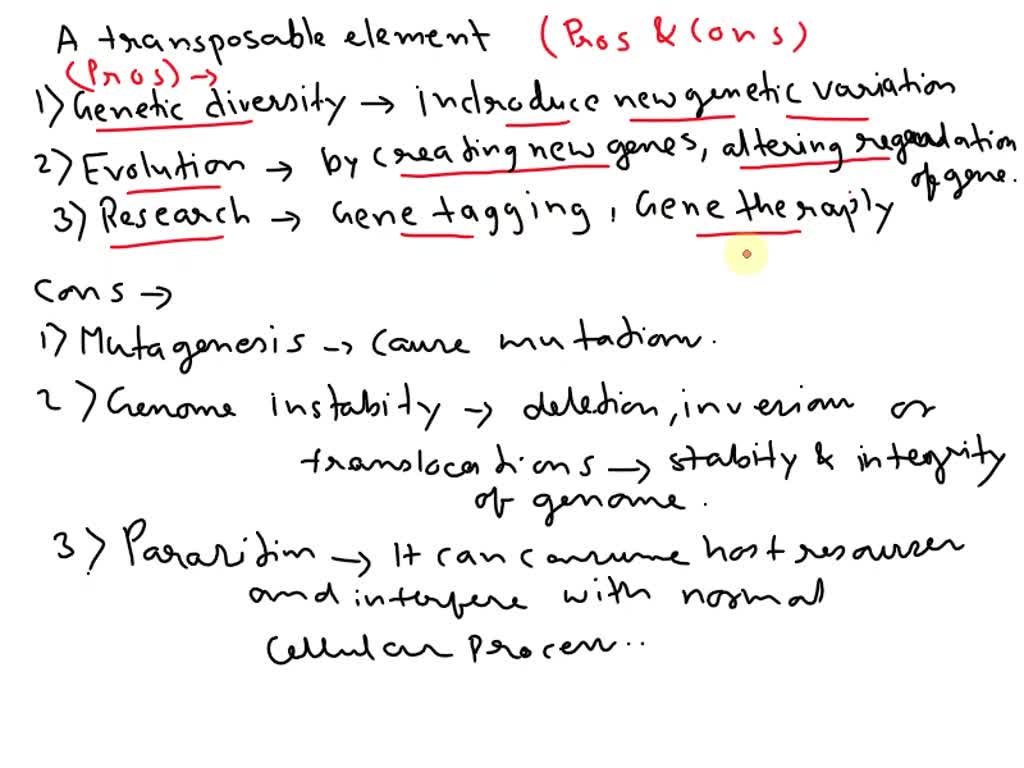 A transposable element (Pros & Cons)
(Pros) →
1) Genetic diversity → introduce new genetic variation
2) Evolution → by creating new genes, altering regulation of gene.
3) Research → Gene tagging, Gene theraply
Cons →
1) Mutagenesis → cause mutation.
2) Genome instabity → deletion, inversion or
translocations → stabity & integrity
of genome.
3) Parasitism → It can consume host resources
and interfere with normal
cellular process..